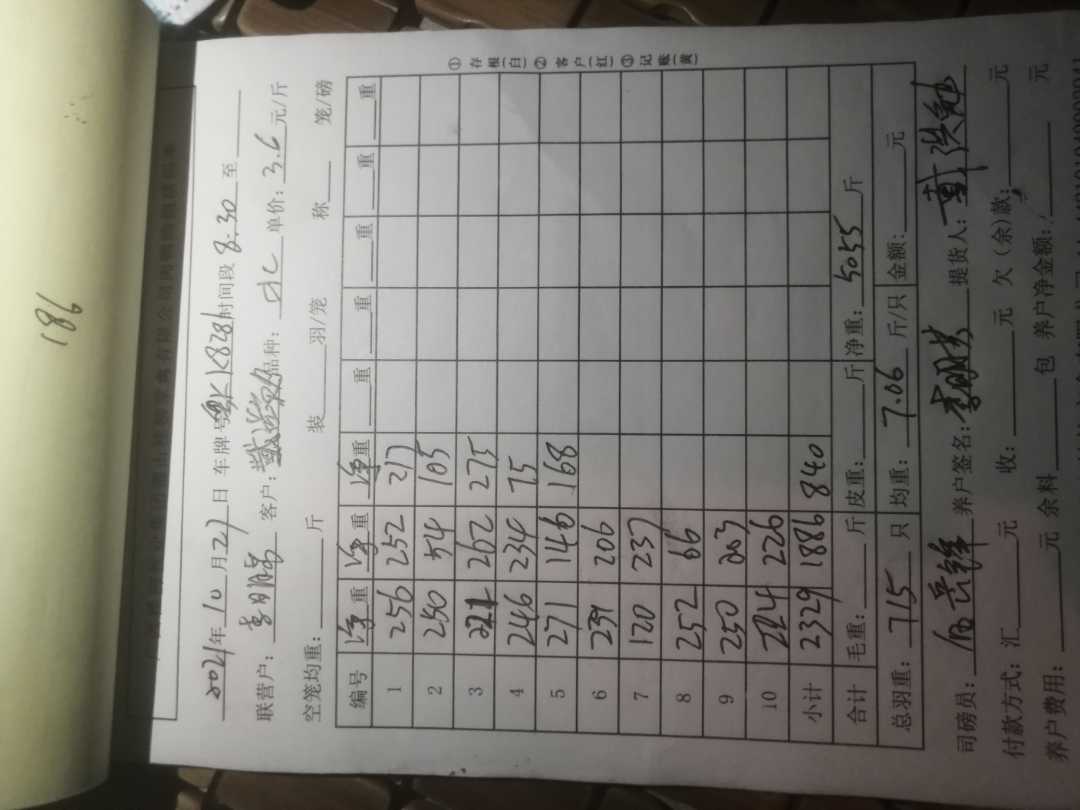 186
① 存根(白) ② 客户(红) ③ 记账(黄)
2021年10月27日 车牌号 K8281 时间段 8:30 至
联营户: 李明 客户: 品种: 单价: 3.6 元/斤
空笼均重: 斤 装 羽/笼 称 笼/磅
编号 净重 净重 净重 重 重 重 重 重
1 256 252 217
2 250 54 105
3 262 275
4 246 234 75
5 271 146 168
6 239 206
7 120 237
8 252 66
9 250 203
10 226
小计 2329 1886 840
合计 毛重: 斤 皮重: 斤 净重: 5055 斤
总羽重: 715 只 均重: 7.06 斤/只 金额: 元
司磅员: 养户签名: 李明 提货人:
付款方式: 汇 元 收: 元 欠(余)款: 元
养户费用: 元 余料 包 养户净金额: 元